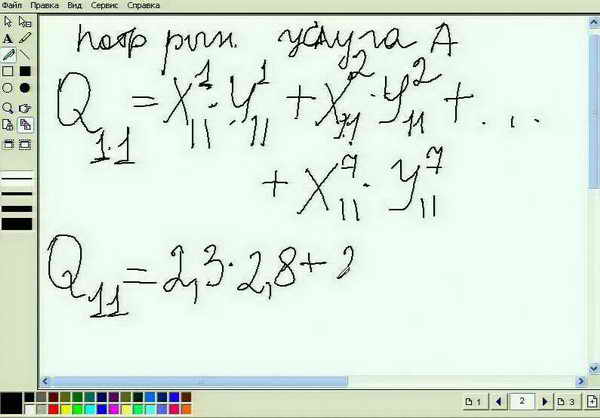 Файл Правка Вид Сервис Справка
потр рын. услуга А
Q₁.₁ = X₁₁¹ · Y₁₁¹ + X₁₁² · Y₁₁² + . . .
+ X₁₁⁷ · Y₁₁⁷
Q₁₁ = 2,3 · 2,8 + 2
1 2 3